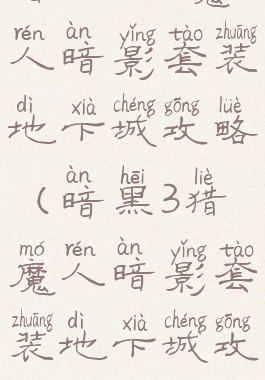 rén àn yǐng tào zhuāng
人暗影套装
dì xià chéng gōng lüè
地下城攻略
àn hēi liè
(暗黑3猎
mó rén àn yǐng tào
魔人暗影套
zhuāng dì xià chéng gōng
装地下城攻